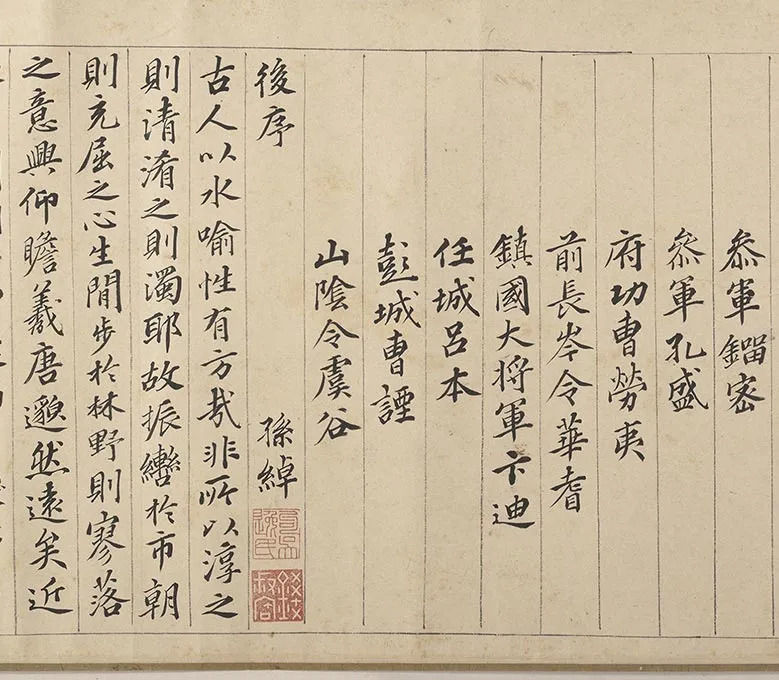 叅軍鎦密
叅軍孔盛
府功曹勞夷
前長岑令華耆
鎮國大将軍卞迪
任城呂本
彭城曹諲
山陰令虞谷
後序 孫綽
古人以水喻性有方哉非所以淳之
則清淆之則濁耶故振轡於市朝
則充屈之心生閒步於林野則寥落
之意興仰瞻羲唐邈然遠矣近